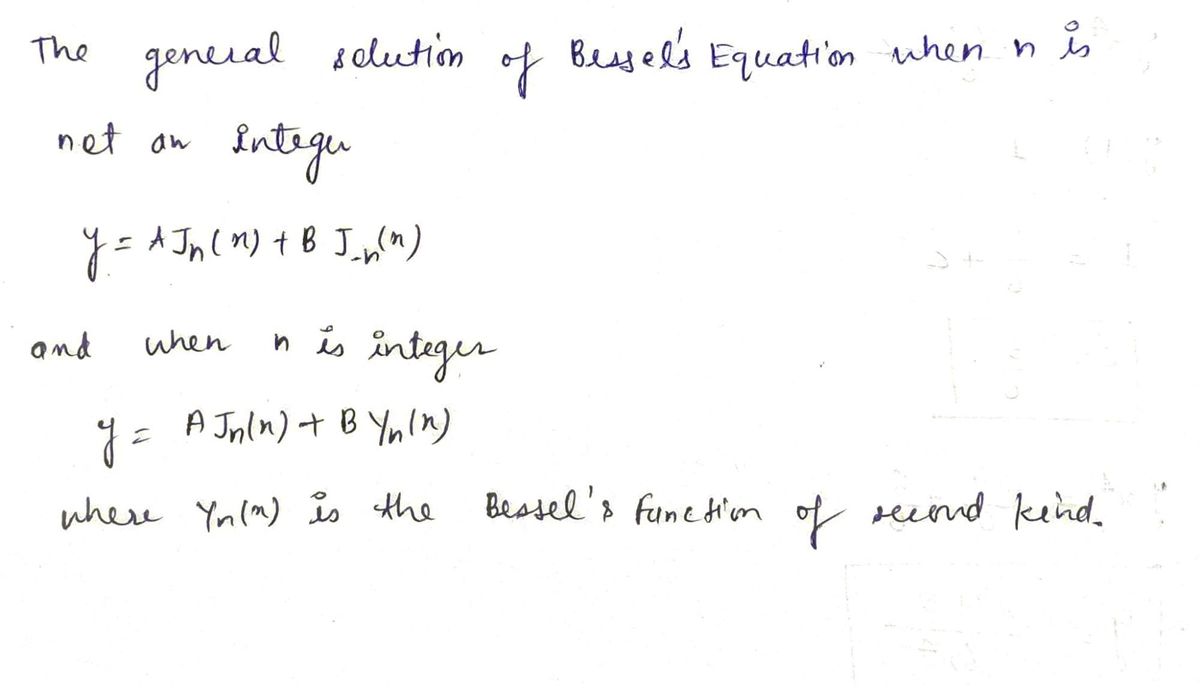 The general solution of Bessel's Equation when n is
not an integer
y = A Jn(x) + B J-n(x)
and when n is integer
y = A Jn(x) + B Yn(x)
where Yn(x) is the Bessel's function of second kind.